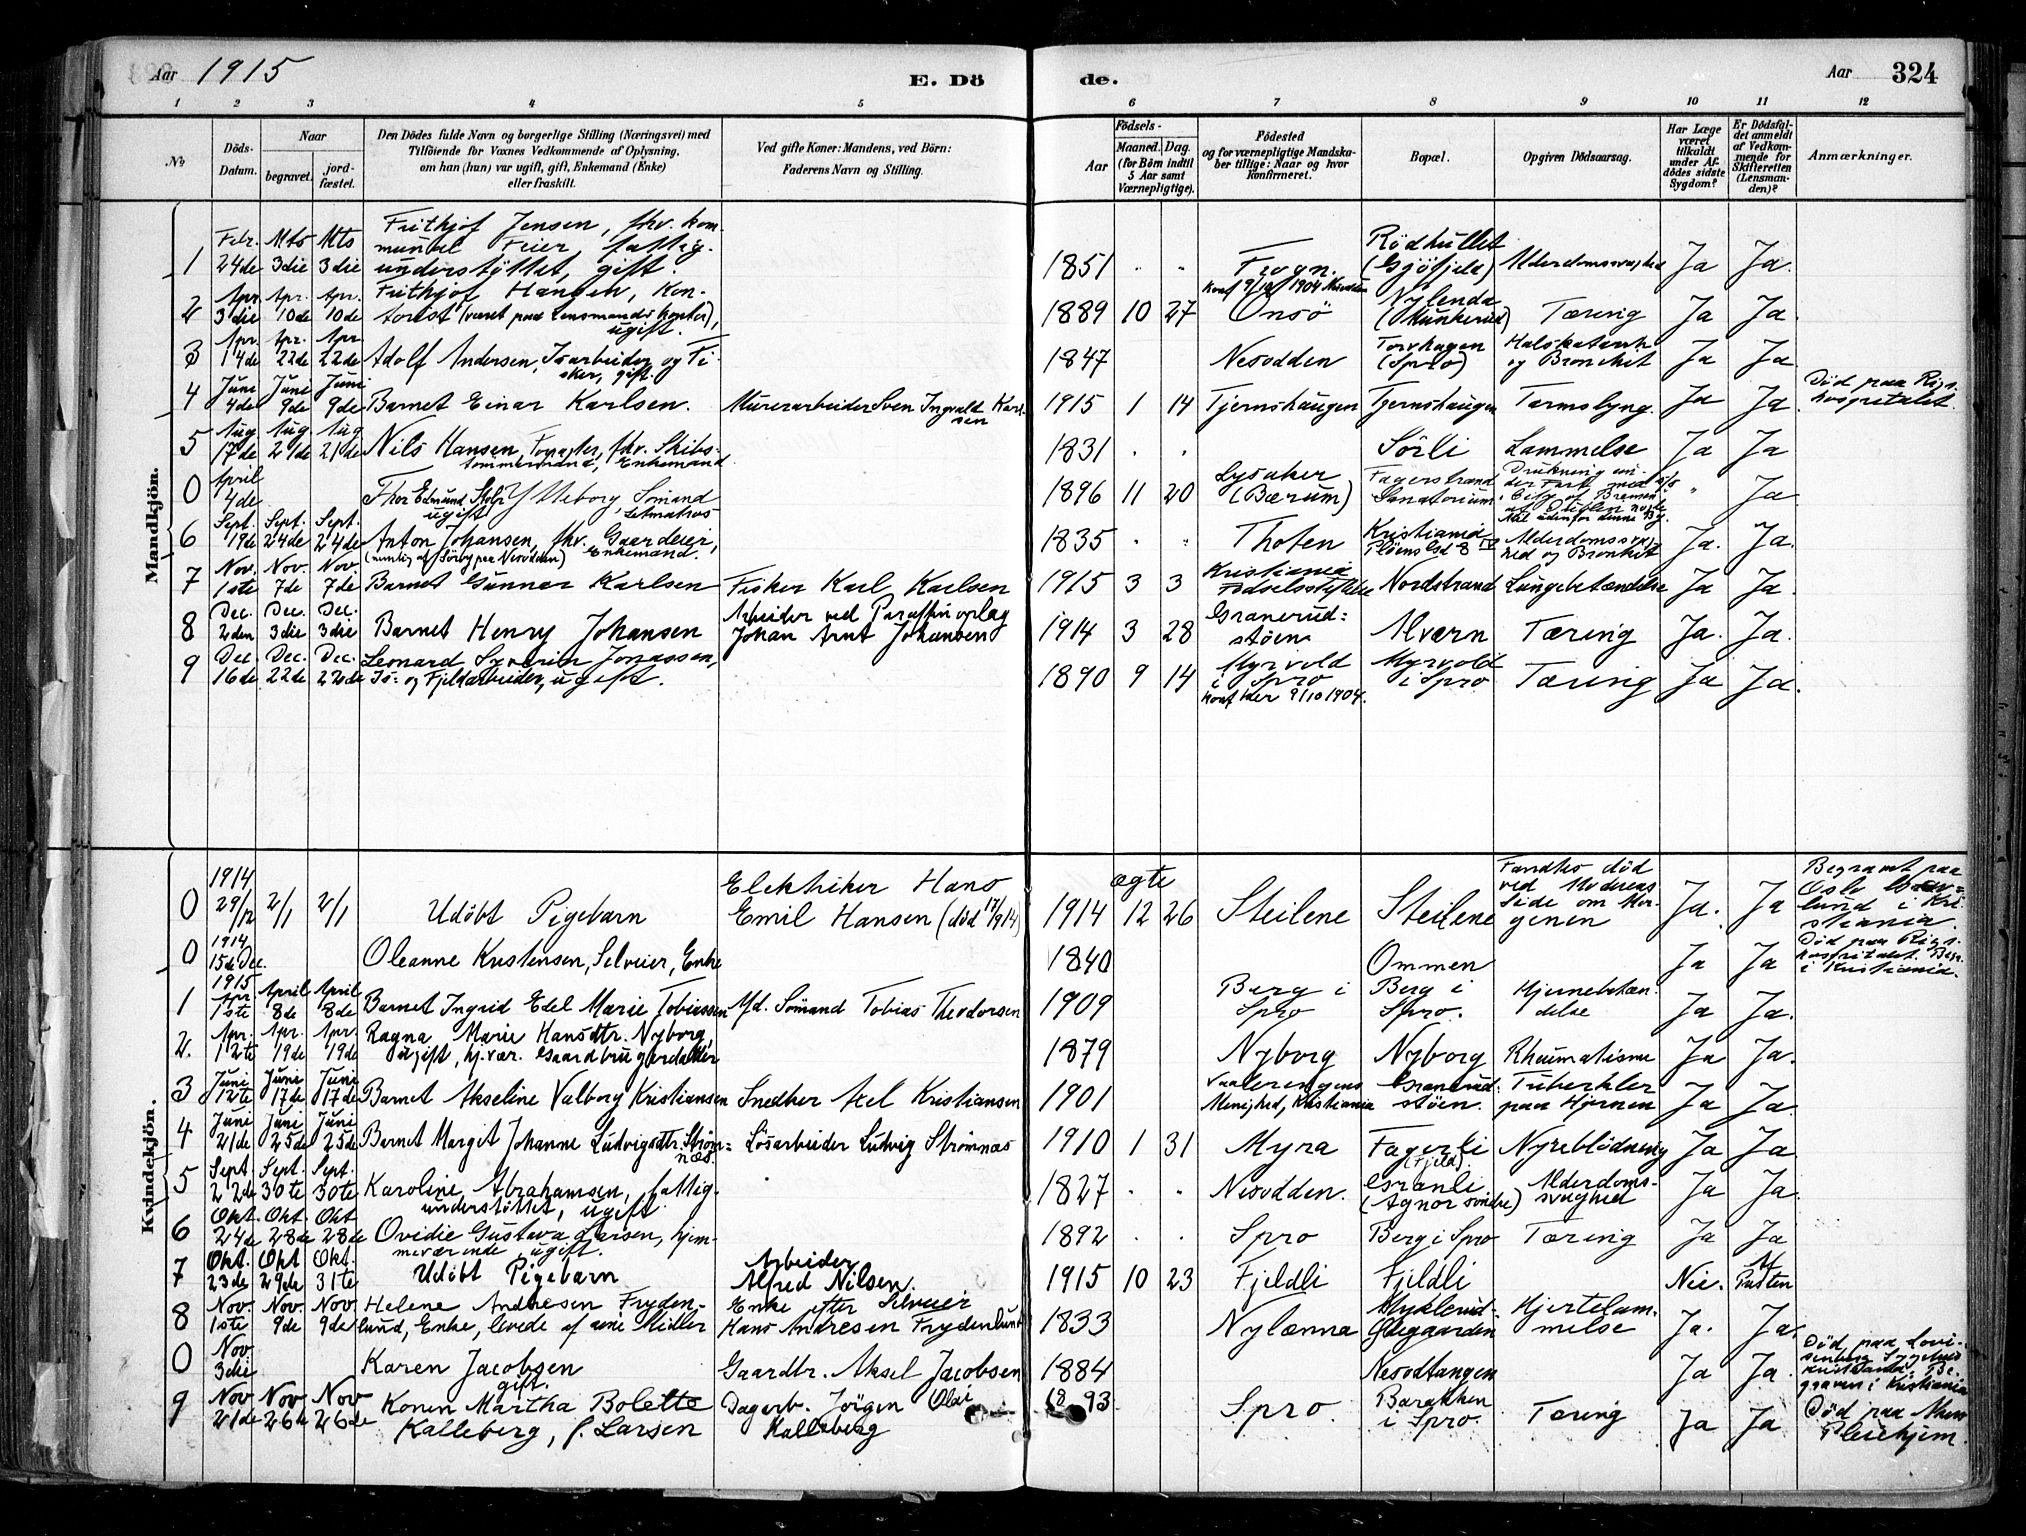 Aar 1915 E. Dö
de. Aar 324
1 2 3 4 5 6 7 8 9 10 11 12
No
Döds-
Datum.
Naar
begravet.
jord-
fæstet.
Den Dödes fulde Navn og borgerlige Stilling (Næringsvei) med
Tilföiende for Voxnes Vedkommende af Oplysning,
om han (hun) var ugift, gift, Enkemand (Enke)
eller fraskilt.
Ved gifte Koner: Mandens, ved Börn:
Faderens Navn og Stilling.
Födsels-
Aar
Maaned. Dag.
(for Börn indtil
5 Aar samt
Værnepligtige).
Födested
og for værnepligtige Mandska-
ber tillige: Naar og hvor
Konfirmeret.
Bopæl.
Opgiven Dödsaarsag.
Har Læge
været
tilkaldt
under Af-
dödes sidste
Sygdom?
Er Dödsfal-
det anmeldt
af Vedkom-
mende for
Skifteretten
(Lensman-
den)?
Anmærkninger.
Mandkjön.
1 Febr. 24de Mts 3die Mts 3die
Frithjof Jensen, fhv. kom-
munal Feier, fattig-
understöttet, gift.
1851 Frogn. Rødhullet (Gjöfjeld) Alderdomssvaghed Ja Ja.
2 Apr. 3die Apr. 10de Apr. 10de
Frithjof Hansen, Kon-
torist (været paa Lensmands kontor),
ugift.
1889 10 27 Konf 9/10 1904 Nesodden
Onsö Nylenda (Munkerud) Tæring Ja Ja.
3 Apr. 14de Apr. 22de Apr. 22de
Adolf Andersen, Isarbeider og Fi-
sker, gift.
1847 Nesodden Torvhagen (Spro) Halskatarrh og Bronchit Ja Ja
4 Juni 4de Juni 9de Juni 9de
Barnet Einar Karlsen. Murerarbeider Sven Ingvald Karl-
sen
1915 1 14 Tjernshaugen Tjernshaugen Tarmslyng. Ja Ja
Död paa Rigs-
hospitalet.
5 Aug 17de Aug. 21de Aug 21de
Nils Hansen, fhv. Skibs-
tömmermand, Enkemand
1831 Sörli Lammelse Ja Ja
0 April 4de
Thor Edmund Ytteborg, Sömand
ugift Letmatros
1896 11 20 Lysaker (Bærum) Fagerstrand Sanatorium Drukning un-
der Fart med s/s
City of Bremen
Ja
6 Sept. 19de Sept. 24de Sept. 24de
Anton Johansen, fhv. Gaardeier,
(nemlig af Sörby paa Nesodden) Enkemand.
1835 Thoten Kristiania Alderdomssvag-
hed og Bronkit Ja. Ja.
7 Nov. 1ste Nov. 7de Nov 7de
Barnet Gunnar Karlsen Fisker Karl Karlsen
1915 3 3 Kristiania Födselsstiftelse Nordstrand Lungebetændelse Ja Ja
8 Dec. 2den Dec. 3die Dec. 3die
Barnet Henry Johansen Arbeider ved Paraffinoplag
Johan Arnt Johansen
1914 3 28 Granerud-
stöen Alværn Tæring Ja. Ja.
9 Dec. 16de Dec. 22de Dec. 22de
Leonard Syverin Jonassen,
Is- og Fjeldarbeider, ugift.
1890 9 14 Myrvold i Spro Myrvold i Spro Tæring Ja Ja.
Konf her 9/10 1904.
Kvindekjön.
0 1914 29/12 2/1 2/1
Udöbt Pigebarn Elektriker Hans
Emil Hansen (död 17/9 14)
ægte
1914 12 26 Steilene Steilene Fandtes död
ved Moderens
Side om Mor-
genen Ja. Ja
Begravet paa
Oslo
lund i Kri-
stiania.
0 1914 15de Dec.
Oleanne Kristensen, Selveier, Enke
1840 Ommen Ja Ja
Död paa Rigs-
hospitalet. Begr.
i Kristiania.
1 1915 Apr. 1ste April 8de April 8de
Barnet Ingrid Edel Marie Tobiassen Yd. Sömand Tobias Theodorsen
1909 Berg i Spro Berg i Spro. Hjernebetæn-
delse Ja Ja.
2. Apr. 12te Apr. 19de Apr. 19de
Ragna Marie Hansdtr. Nyborg,
ugift, hj.vær. Gaardbrugerdatter
1879 Nyborg Nyborg Rheumatisme Ja Ja.
3 Juni 12te Juni 17de Juni 17de
Barnet Akseline Valborg Kristiansen Snedker Axel Kristiansen
1901 Vaalerengens
Menighed, Kristiania Granerud-
stöen. Tuberkler
paa Hjernen Ja Ja.
4 Juni 21de Juni 25de Juni 25de
Barnet Margit Johanne Ludvigsdtr. Ström-
næs. Lösarbeider Ludvig Strömnæs
1910 1 31 Myra Fagerli (Fjeld). Nyreblödning Ja Ja
5 Sept. 22de Sept. 30te Sept. 30te
Karoline Abrahamsen, fattig-
understöttet, ugift
1827 Nesodden. Granli
(Agnor söndre) Alderdoms-
svaghed Ja Ja.
6 Okt. 24de Okt. 28de Okt 28de
Ovidie Gustava Larsen, hjem-
meværende, ugift.
1892 Spro Berg i Spro Tæring Ja Ja
7 Okt. 23de Okt 29de Okt. 31te
Udöbt Pigebarn Arbeider
Alfred Nilsen.
1915 10 23 Fjeldli Fjeldli Nei. Af
Presten
8 Nov. 1ste Nov. 9de Nov 9de
Helene Andresen Fryden-
lund, Enke, levede af sine Midler Enke efter Selveier
Hans Andresen Frydenlund
1833 Nylænna Myklerud-
Ødegaarden Hjertelam-
melse Ja. Ja.
0 Nov 3die
Karen Jacobsen
gift. Gaardbr. Aksel Jacobsen
1884 Nesodtangen Ja Ja.
Död paa Lovi-
senberg Sygehus
Kristiania. Be-
graven i Kristiania
9 Nov 21de Nov 26de Nov 26de
Konen Martha Bolette
Kalleberg, f. Larsen Dagarb. Jörgen Olai
Kalleberg
1893 Spro. Barakken i Spro. Tæring Ja Ja
Död paa
Pleiehjem.